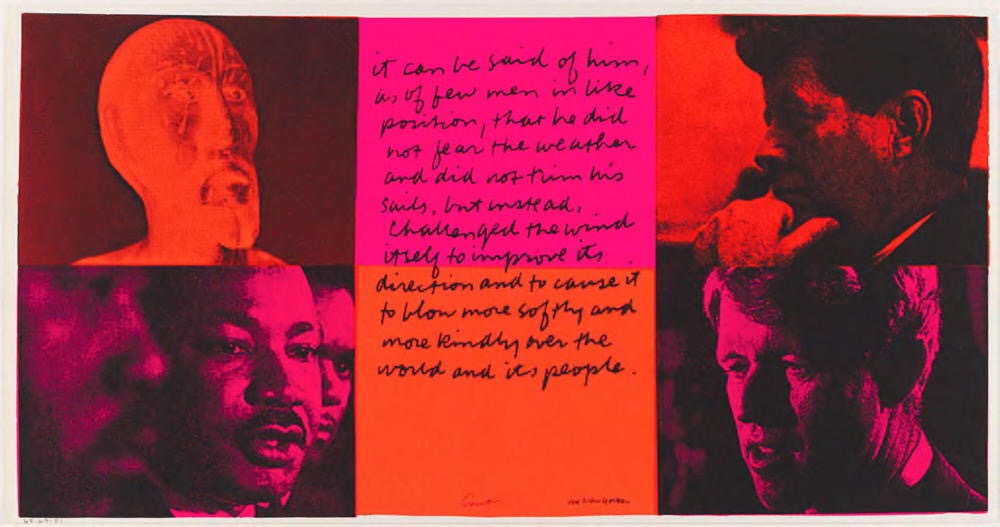 it can be said of him,
as of few men in like
position, that he did
not fear the weather
and did not trim his
sails, but instead,
challenged the wind
itself to improve its
direction and to cause it
to blow more softly and
more kindly over the
world and its people.
Corita the New Yorker